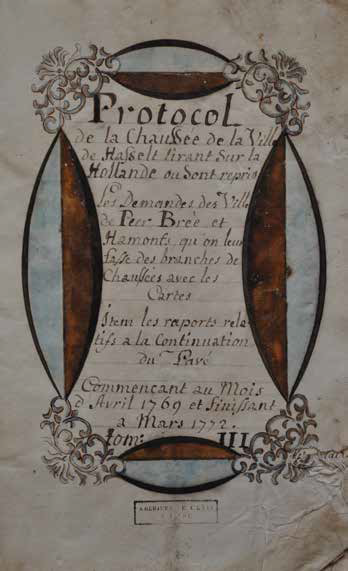 Protocol
de la Chaussée de la Ville
de Hasselt tirant Sur la
Hollande ou Sont repris
les Demandes des Ville
de Peer Brée et
Hamonts qu'on leur
fasse des branches de
Chaussées avec les
Cartes
Item les raports rela
tifs a la Continuation
du Pavé
Commencant au Mois
d'Avril 1769 et finissant
a Mars 1772.
tom: III